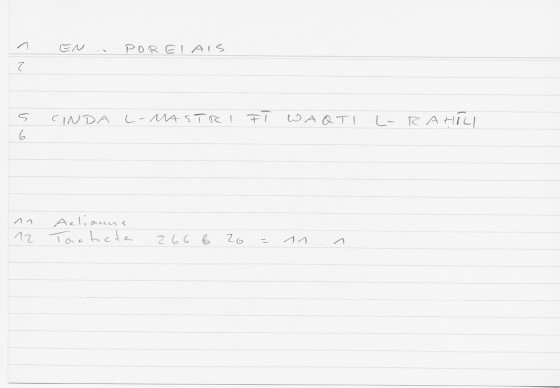 1 EN .. POREIAIS
2
5 CINDA L-MASTRI FĪ WAQTI L-RAḤĪLI
6
11 Aelianus
12 266 20 = 11 1